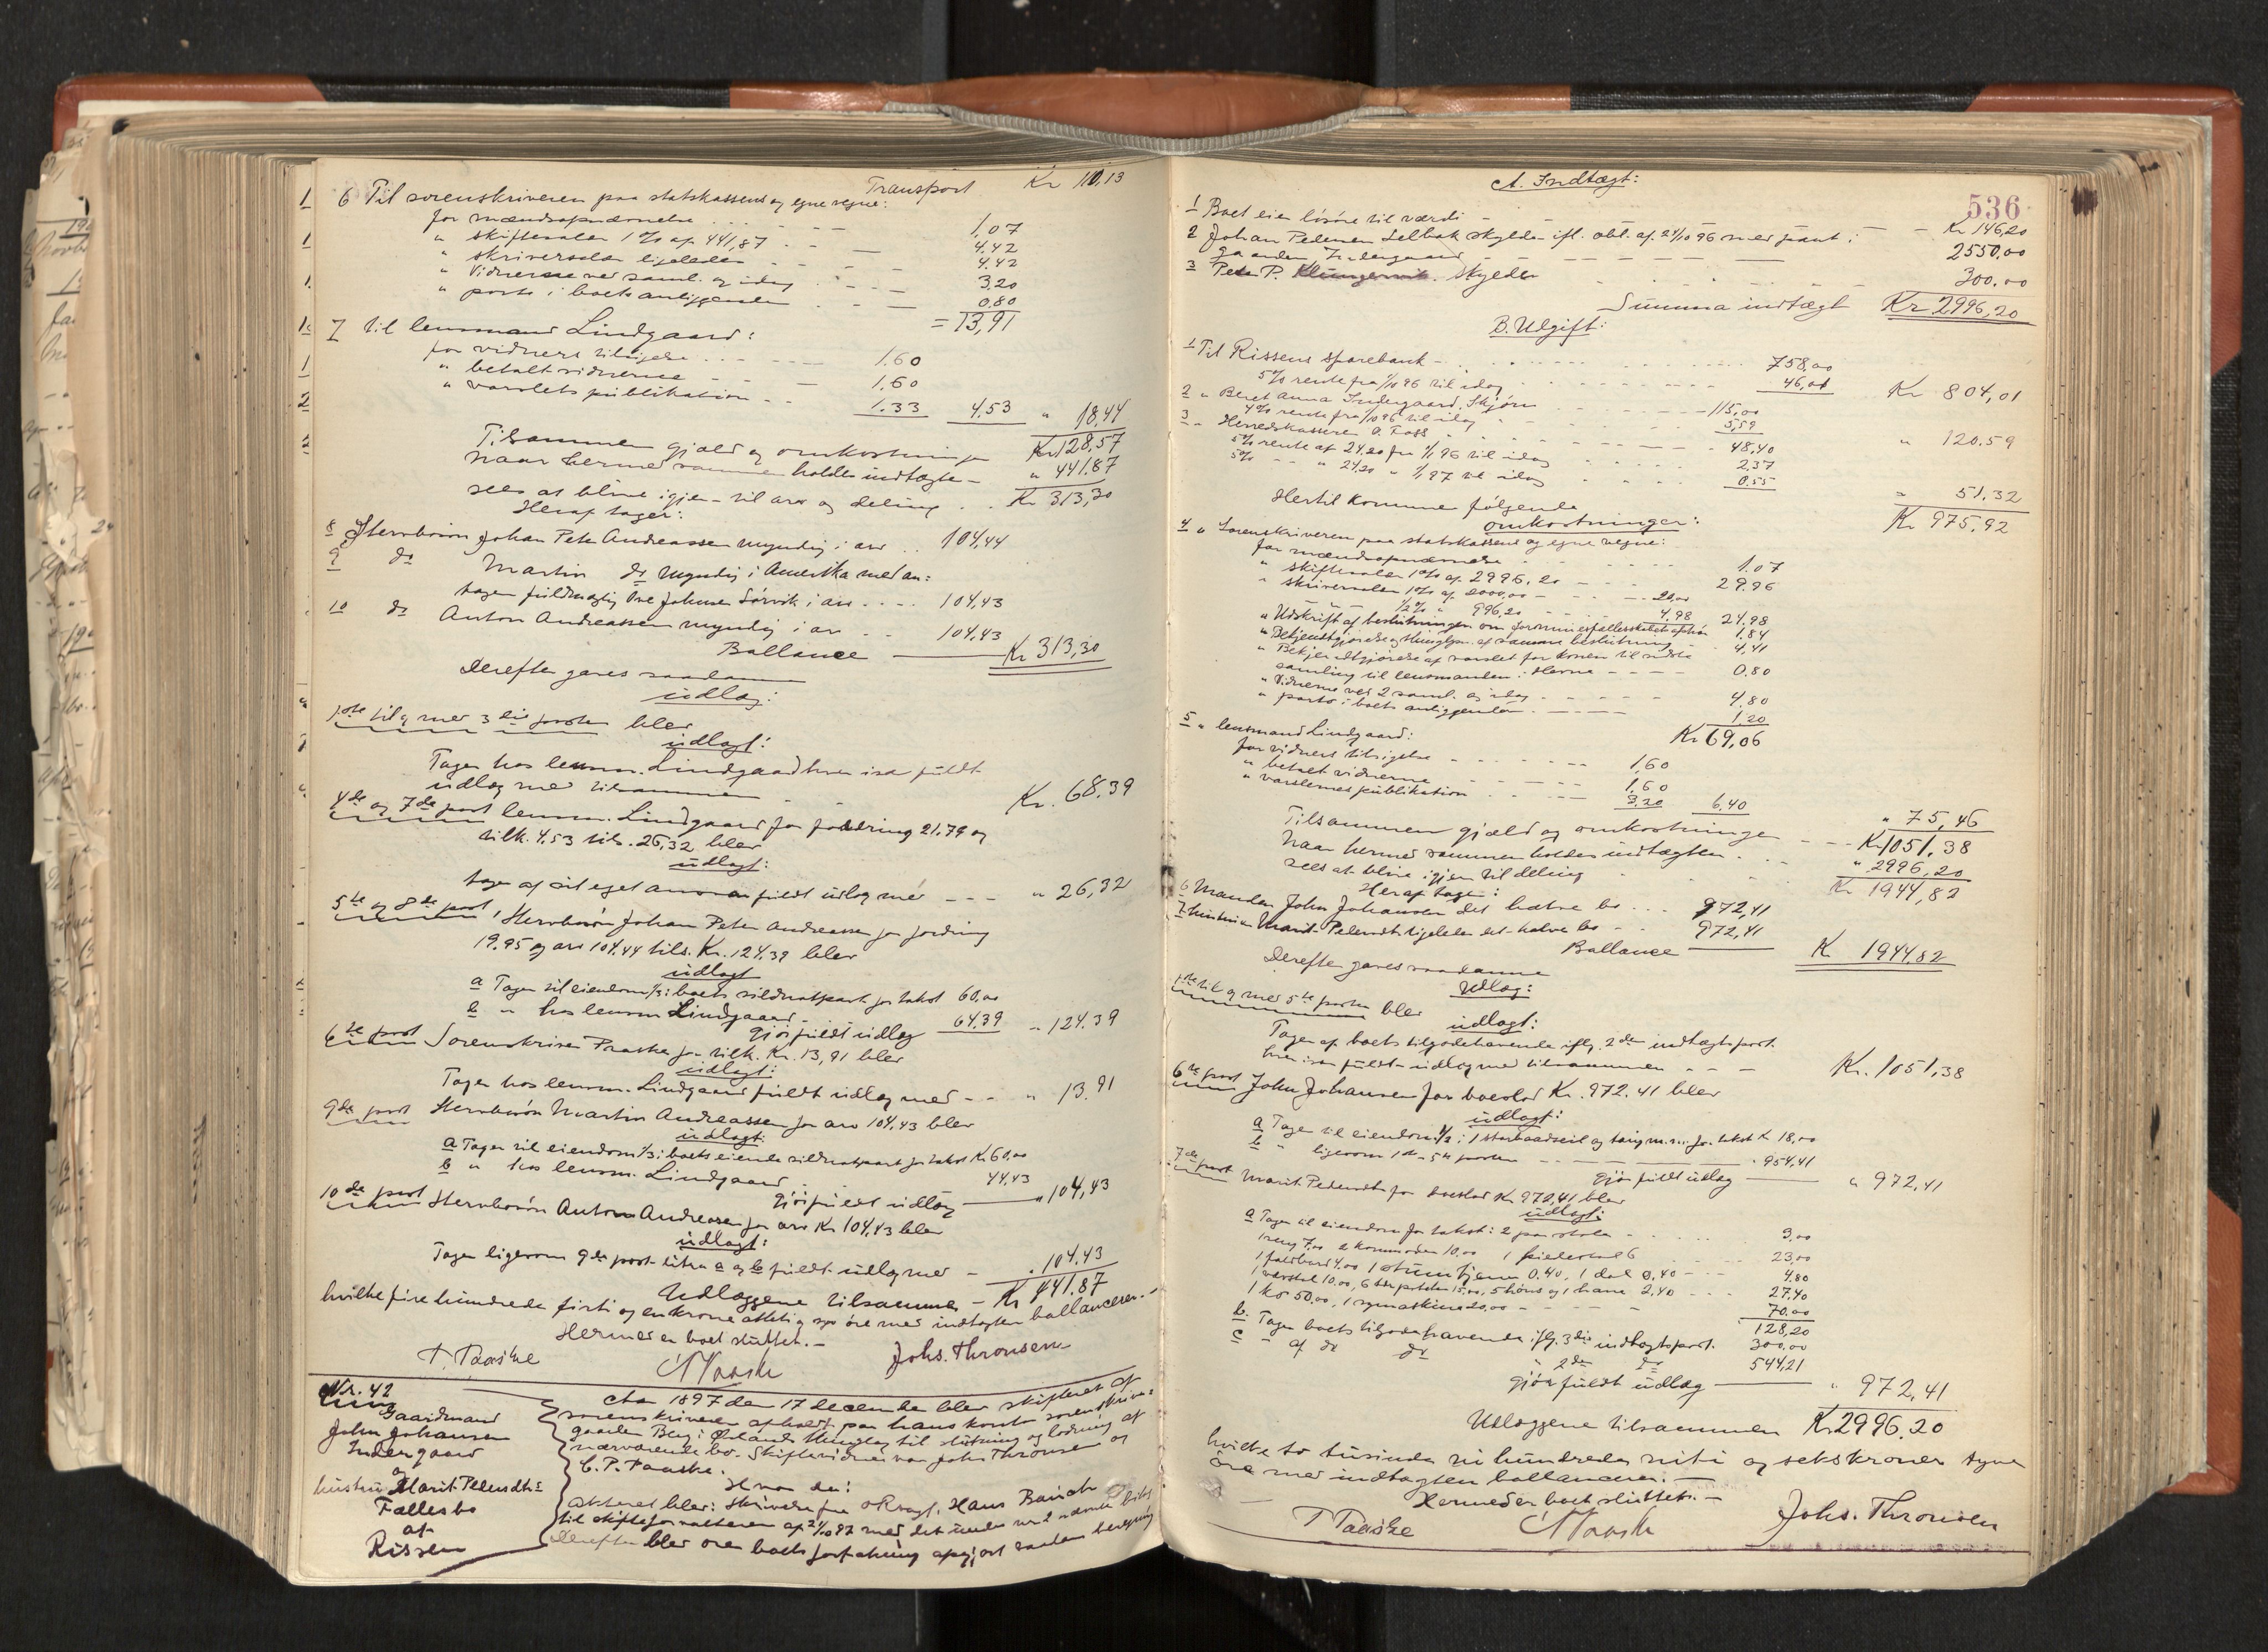 Transport Kr 110,13
6 Til sorenskriveren paa statskassens og egne vegne:
for mændsopnævnelse 1,07
" skiftesalen 1% af 441,87 4.42
" skriversalen ligeledes 4.42
" Vidnerne ved saml. og idag 3.20
" porto i boets anliggender 0.80
= 13,91
7 til lensmand Lindgaard:
for vidners tilsigelse 1.60
" betalt vidnerne 1.60
" varslets publikation 1.33 4.53 " 18,44
Tilsammen gjæld og omkostninger Kr 128,57
Naar hermed sammen holdes indtægten " 441.87
sees at blive igjen til arv og deling Kr 313,30
Heraf tager:
8 Johan Peter Andreassen myndig i arv 104,44
9 do Martin do myndig i Amerika med an=
tagen fuldmægtig Ove Johnsen Sørvik i arv 104,43
10 do Anton Andreassen myndig i arv 104,43
Ballance Kr 313,30
Derefter gøres saadanne
udlæg:
1ste til og med 3die posten blev
udlagt:
Tages hos lensm. Lindgaard hver især fuldt
udlæg med tilsammen Kr. 68.39
4de og 7de post lensm. Lindgaard for fordring 21.79 og
tilk. 4.53 tils. 26,32 blev
udlagt:
tages af sit eget ansvar fuldt udlæg med " 26,32
5te og 8de post Johan Peter Andreassen for fordring
19.95 og arv 104,44 tils. Kr. 124.39 blev
udlagt
a Tages til eiendom 1/3 i boets sildnotpart for takst 60,00
b " hos lensm Lindgaard 64.39
gjør fuldt udlæg " 124.39
6te post Sorenskriver Paaske for tilk. Kr. 13,91 blev
udlagt:
Tages hos lensm. Lindgaard fuldt udlæg med " 13.91
9de post Martin Andreassen for arv 104,43 blev
udlagt:
a Tages til eiendom 1/3 i boets eiende sildnotpart for takst Kr 60,00
b " hos lensm. Lindgaard 44,43
gjør fuldt udlæg " 104,43
10de post Anton Andreassen for arv Kr 104,43 blev
udlagt:
Tages ligesom 9de post litra a og b fuldt udlæg med 104.43
Udlæggene tilsammen Kr 441.87
hvilke fire hundrede firti og en krone otteti og syv øre med indtægten ballancerer.-
Hermed er boet sluttet.-
T. Paaske C Paaske Johs. Thronsen
Nr. 42
Gaardmand
John Johansen
Indergaard
og
hustru Marit Pedersdtrs
Fællesbo
af
Rissen
Aar 1897 den 17 december blev skifteret af
sorenskriveren afholdt paa hans kontor sorenskriver=
gaarden Berg i Ørlands thinglag til slutning og lodning af
nærværende bo. Skiftevidner var Johs Thronsen og
C. P. Paaske.
Hvor da:
Akteret blev: Skrivelse fra oRsagf. Hans Bauck
til skifteforvalteren af 21/10 97 med det under nr 2 nævnte bilag
Derefter blev over boets forfatning opgjort saadan beregning
536
A. Indtægt:
1 Boet eier løsøre til værdi Kr 146,20
2 Johan Pedersen Selbæk skylder ifl. obl. af 24/10 96 med pant i
gaarden Indergaard 2550,00
3 Peder P. Klungervik. Skylder 300.00
Summa indtægt Kr 2996,20
B. Udgift:
1 Til Rissens sparebank 758,00
5% rente fra 1/10 96 til idag 46,01 Kr 804,01
2 " Beret Anna Indergaard, Skjørn 115,00
4% rente fra 1/10 96 til idag 5,59 " 120.59
3 " Herredskasserer O. Foss 48,40
5% rente af 24,20 fra 1/1 96 til idag 2.37
5% " " 24,20 " 1/1 97 til idag 0.55 " 51.32
Hertil kommer følgende Kr 975.92
omkostninger:
4 " Sorenskriveren paa statskassens og egne vegne:
for mændsopnævnelse 1.07
" skiftesalen 1% af 2996,20 29.96
" skriversalen 1% af 2000,00 20,00
" " 1/2% " 996,20 4,98 24,98
" Udskrift af beslutningen om formuesfællesskabets ophør 1,84
" Bekjendtgjørelse og thinglysn. af samme beslutning 4,41
" Bekjendtgjørelse af varslet for konen til sidste
samling til lensmanden i Hevne 0.80
" Vidnerne ved 2 saml. og idag 4.80
" porto i boets anliggender 1.20
Kr 69,06
5 " lensmand Lindgaard:
for vidners tilsigelse 1,60
" betalt vidnerne 1,60
" varslernes publikation 3,20 6,40 " 75,46
Tilsammen gjæld og omkostninger Kr 1051,38
Naar hermed sammen holdes indtægten " 2996,20
sees at blive igjen til deling Kr 1944,82
Heraf tager:
6 Manden John Johansen det halve bo 972,41
7 hustruen Marit Pedersdtr ligeledes det halve bo 972,41
Ballance K 1944.82
Derefter gøres saadanne
Udlæg:
1ste til og med 5te posten blev
udlagt:
Tages af boets tilgodehavende iflg. 2den indtægtspost.
hver især fuldt udlæg med tilsammen Kr. 1051,38
6te post John Johansen for boeslod Kr. 972.41 blev
udlagt:
a Tages til eiendom 1/2 i 1 storbaadseil og taug m.v. for takst K 18,00
b " ligesom 1ste 5te posten 954,41
gjør fuldt udlæg " 972,41
7de post Marit Pedersdtr for boeslod Kr 972,41 blev
udlagt:
a Tages til eiendom for takst: 2 par stoler 3,00
1 seng 7,00 2 kommoder 10.00 1 6 23,00
1 foldbord 4.00 1 strygejern 0.40, 1 dal 0,40 4.80
1 vævstol 10.00, 6 tdr poteter 15.00, 5 høns og 1 hane 2,40 27,40
1 ko 50.00, 1 symaskine 20,00 70.00
128,20
b. Tages boets tilgodehavende iflg. 3die indtægtspost. 300,00
c " af do do " 2den do 544,21
gjør fuldt udlæg " 972,41
Udlæggene tilsammen Kr 2996.20
hvilke to tusinde ni hundrede niti og seks kroner tyve
øre med indtægten ballancerer.-
Hermed er boet sluttet.-
T Paaske C Paaske Johs. Thronsen